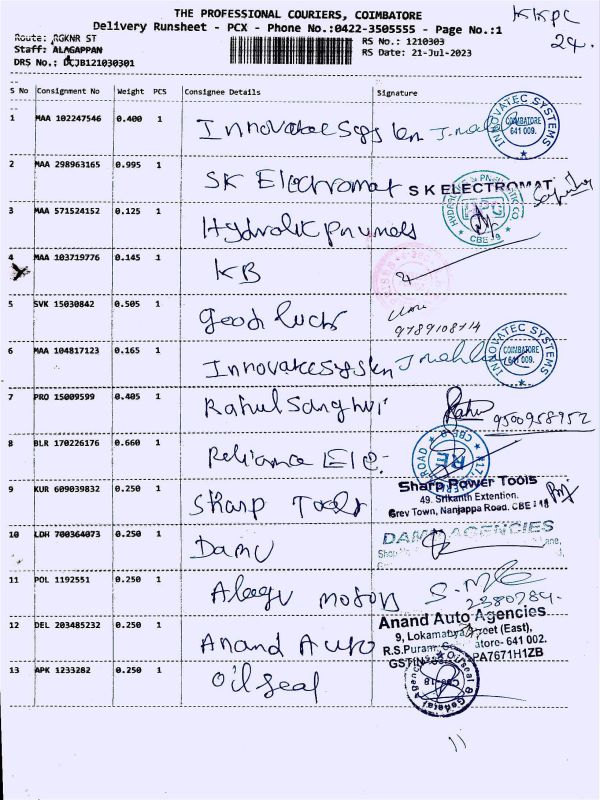 THE PROFESSIONAL COURIERS, COIMBATORE
KKPC
Delivery Runsheet - PCX - Phone No.:0422-3505555 - Page No.:1
24.
Route: RGKNR ST
RS No.: 1210303
Staff: ALAGAPPAN
RS Date: 21-Jul-2023
DRS No.: DCJB121030301
S No Consignment No Weight PCS Consignee Details Signature
1 MAA 102247546 0.400 1 Innovatec System
INNOVATEC SYSTEMS COIMBATORE 641 009.
2 MAA 298963165 0.995 1 SK Electromat S K ELECTROMAT
3 MAA 571524152 0.125 1 Hydrolic pnumets
CBE 9
4 MAA 103719776 0.145 1 KB
5 SVK 15030842 0.505 1 Good luck
9789108114
6 MAA 104817123 0.165 1 Innovatec System
INNOVATEC SYSTEMS COIMBATORE 641 009.
7 PRO 15009599 0.405 1 Rahul Sanghvi
9500958952
8 BLR 170226176 0.660 1 Reliance Ele.
ROAD CBE RE
9 KUR 609039832 0.250 1 Sharp Tools
Sharp Power Tools
49. Srikanth Extention.
Grev Town, Nanjappa Road. CBE
10 LDH 700364073 0.250 1 Damu
DAMU AGENCIES
11 POL 1192551 0.250 1 Alagu motors
2380784.
12 DEL 203485232 0.250 1 Anand Auto
Anand Auto Agencies
9, Lokamanya Street (East),
R.S.Puram, Coimbatore- 641 002.
GSTIN PA7671H1ZB
13 APK 1233282 0.250 1 Oil Seal
Oilseal & General Agencies
11